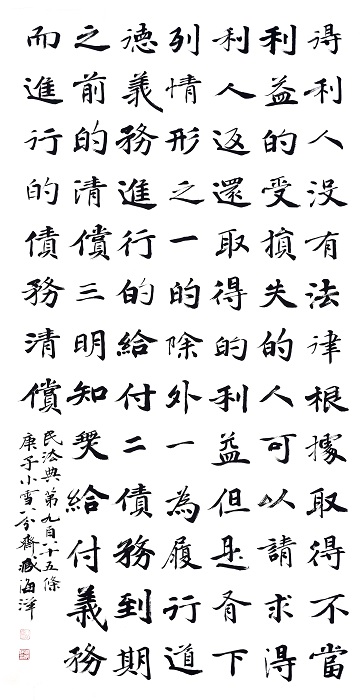 得利人没有法律根據取得不當
利益的受損失的人可以請求得
利人返還取得的利益但是有下
列情形之一的除外一為履行道
德義務進行的給付二債務到期
之前的清償三明知無給付義務
而進行的債務清償
民法典第九百八十五條
庚子小雪齋臧海洋